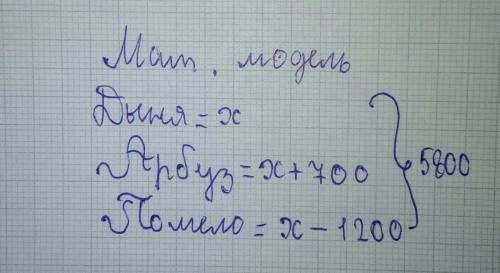 Мат. модель
Дыня = х
Арбуз = х + 700
Помело = х - 1200
5800